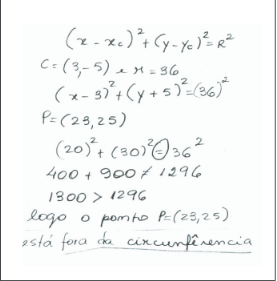 (x - xc)² + (y - yc)² = R²
C = (3, -5) e r = 36
(x - 3)² + (y + 5)² = (36)²
P = (23, 25)
(20)² + (30)² = 36²
400 + 900 ≠ 1296
1300 > 1296
logo o ponto P = (23, 25)
está fora da circunfêrencia